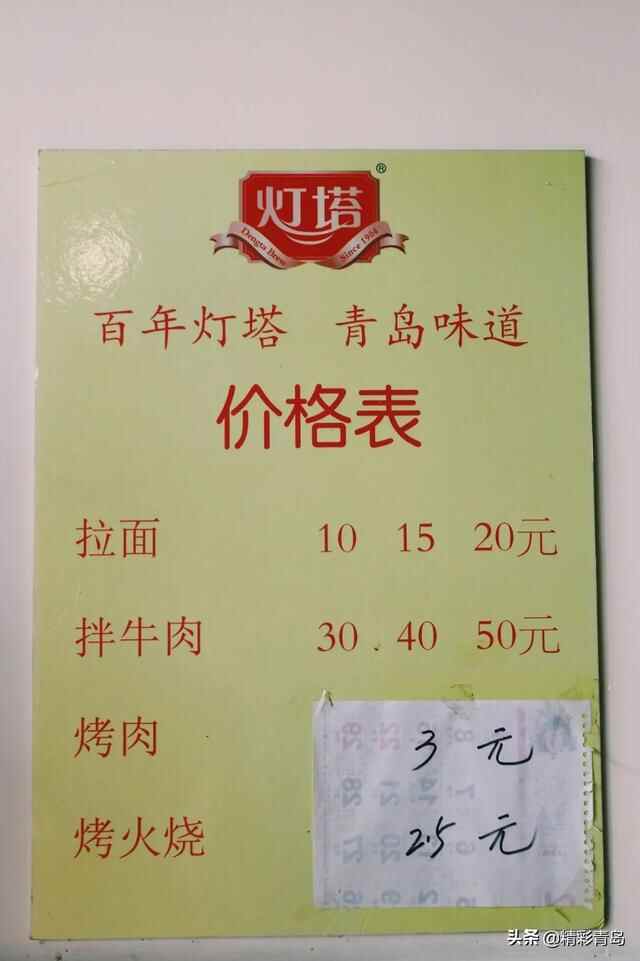 灯塔®
Dengta Brew Since 1904
百年灯塔 青岛味道
价格表
拉面 10 15 20元
拌牛肉 30 40 50元
烤肉 3元
烤火烧 2.5元
头条 @精彩青岛